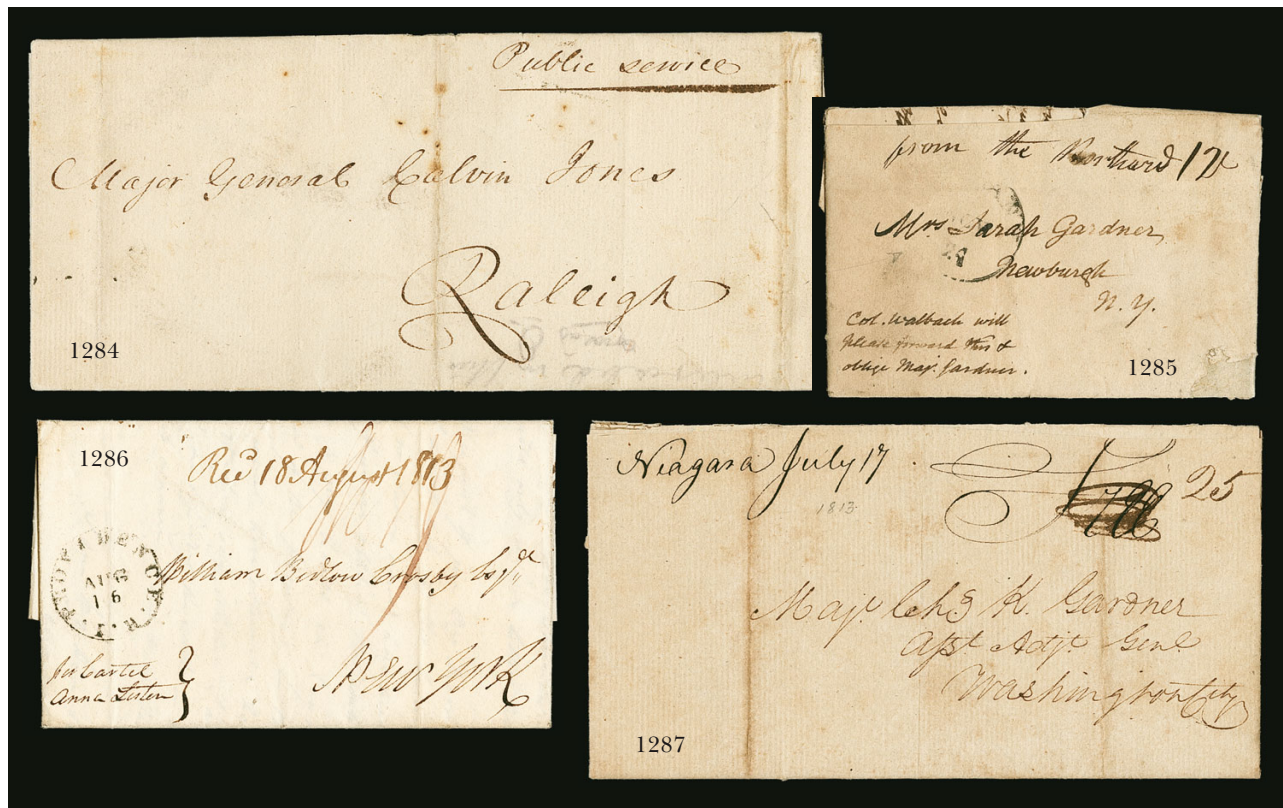 Public service
Major General Calvin Jones
Raleigh
1284
from the Northard 17
Mrs Sarah Gardner
Newburgh
N. Y.
Col. Walbach will
please forward this &
oblige Maj. Gardner.
1285
1286
Recd 18 August 1813
PROVIDENCE. R.I.
AUG
16
William Bedlow Crosby Esqr
New York
per Cartel
Anna
1287
Niagara July 17
1813
Free 25
Majr Chs K. Gardner
Asst Adjt Genl
Washington City